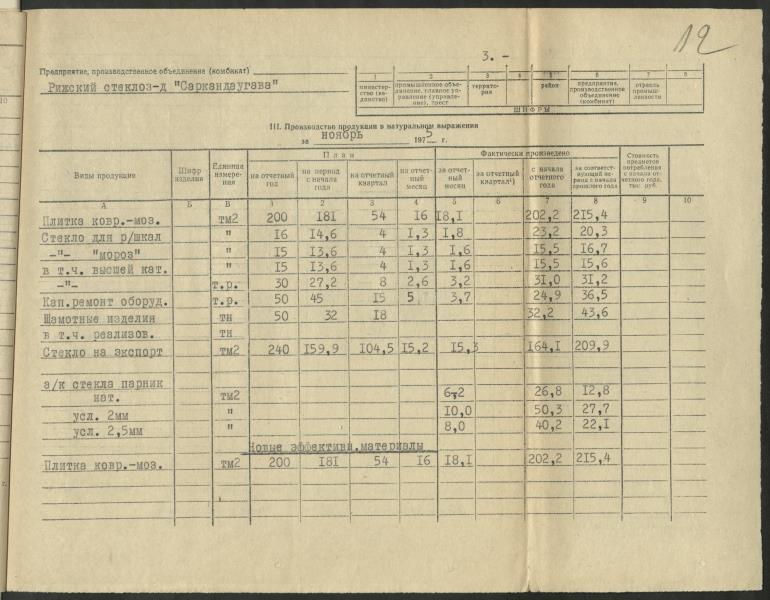 3. –
12
Предприятие, производственное объединение (комбинат)
Рижский стеклоз-д "Саркандаугава"
1 2 3 4 5 6 7 8
министерство (ведомство) промышленное объединение, главное управление (управление), трест территория район предприятие, производственное объединение (комбинат) отрасль промышленности
ШИФРЫ
III. Производство продукции в натуральном выражении
за ноябрь 1975 г.
Виды продукции Шифр изделия Единица измерения План Фактически произведено Стоимость предметов потребления с начала отчетного года, тыс. руб.
на отчетный год на период с начала года на отчетный квартал на отчетный месяц за отчетный месяц за отчетный квартал¹) с начала отчетного года за соответствующий период с начала прошлого года
А Б В 1 2 3 4 5 6 7 8 9 10
Плитка ковр.-моз. тм2 200 181 54 16 18,1 202,2 215,4
Стекло для р/шкал " 16 14,6 4 1,3 1,8 23,2 20,3
-"- "мороз" " 15 13,6 4 1,3 1,6 15,5 16,7
в т.ч. высшей кат. " 15 13,6 4 1,3 1,6 15,5 15,6
-"- т.р. 30 27,2 8 2,6 3,2 31,0 31,2
Кап.ремонт оборуд. т.р. 50 45 15 5 3,7 24,9 36,5
Шамотные изделия тн 50 32 18 32,2 43,6
в т.ч. реализов. тн
Стекло на экспорт тм2 240 159,9 104,5 15,2 15,3 164,1 209,9
а/к стекла парник
нат. тм2 6,2 26,8 12,8
усл. 2мм " 10,0 50,3 27,7
усл. 2,5мм " 8,0 40,2 22,1
Новые эффективн.материалы
Плитка ковр.-моз. тм2 200 181 54 16 18,1 202,2 215,4